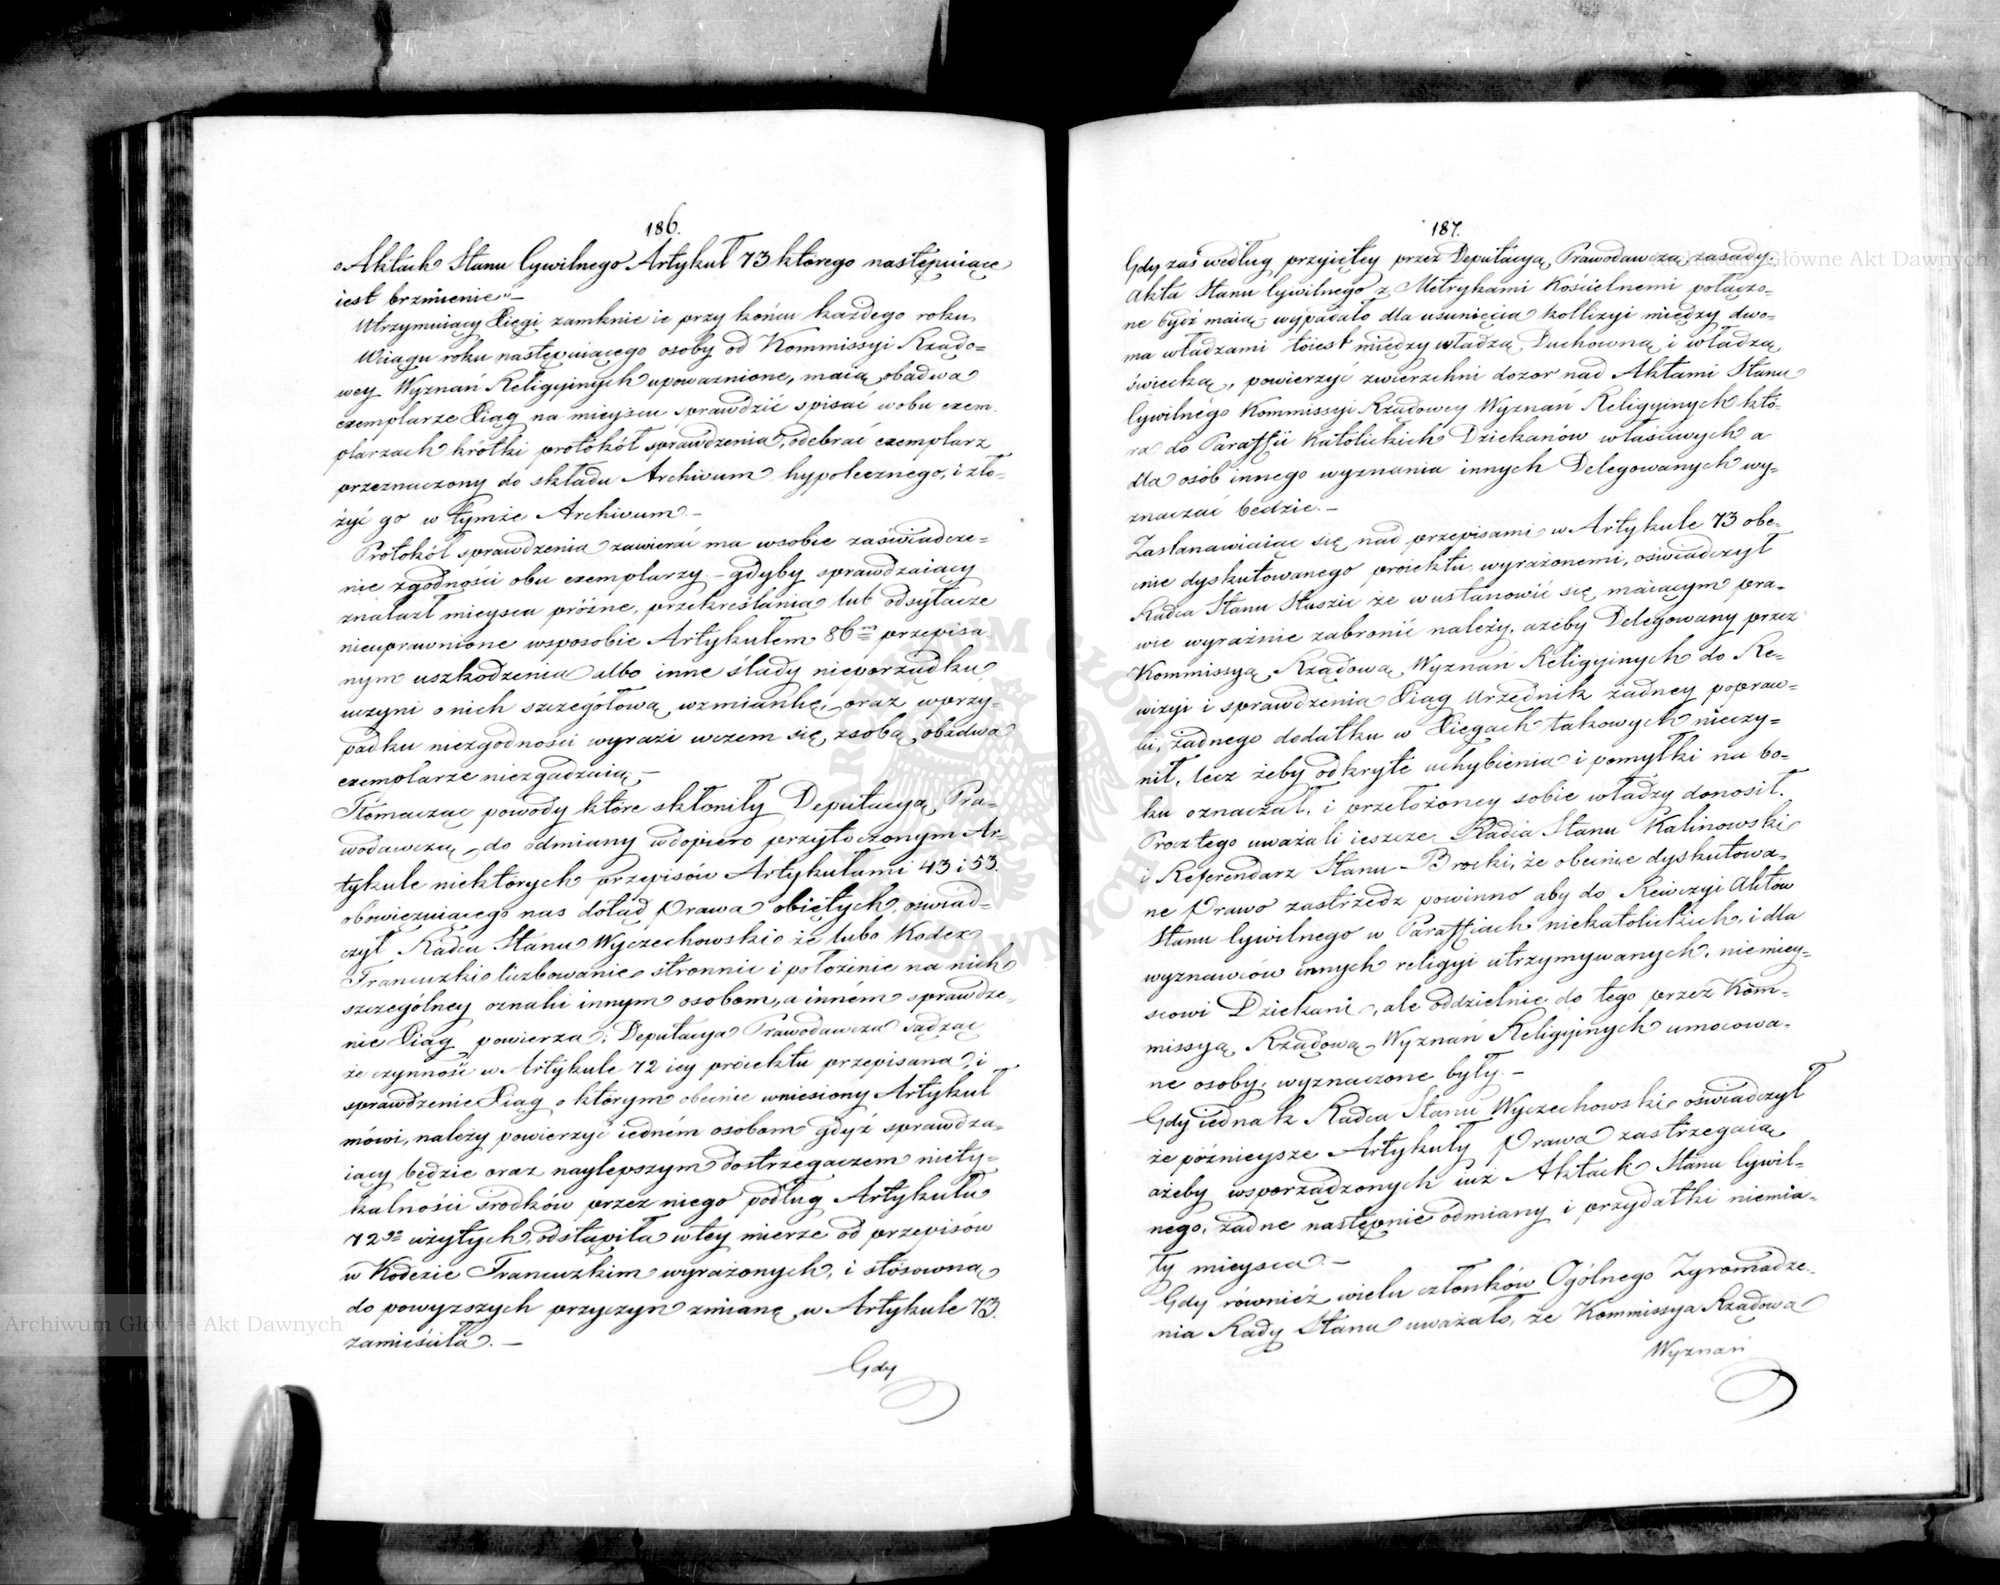 186.
o Aktach Stanu Cywilnego Artykuł 73 którego następuiące
iest brzmienie"—
Utrzymuiący Xięgi zamknie ie przy końcu każdego roku
Wciągu roku następuiącego osoby od Kommissyi Rządo=
wey Wyznań Religyinych upoważnione, maią obadwa
exemplarze Xiąg na mieyscu sprawdzić spisać wobu exem=
plarzach krótki protokół sprawdzenia, odebrać exemplarz
przeznaczony do składu Archivum hypotecznego, i zło=
żyć go w tymże Archivum.—
Protokół sprawdzenia zawierać ma wsobie zaświadcze=
nie zgodności obu exemplarzy – gdyby sprawdzaiący
znalazł mieysca próżne, przekreślania lub odsyłacze
nieuprawnione wsposobie Artykułem 86m przepisa
nym uszkodzenia albo inne ślady nieporządku
uczyni o nich szczegółową wzmiankę, oraz wprzy=
padku niezgodności wyrazi wczem się zsobą obadwa
exemplarze niezgadzaią.—
Tłómacząc powody które skłoniły Deputacyą Pra=
wodawczą do odmiany wdopiero przytoczonym Ar=
tykule niektórych przepisów Artykułami 43 i 53.
obowięzuiącego nas dotąd Prawa obiętych, oświad=
czył Radca Stanu Wyczechowski że lubo Kodex
Francuzki liczbowanie stronnic i położenie na nich
szczególney oznaki innym osobom, a inném sprawdze=
nie Xiąg powierza; Deputacya Prawodawcza sądząc
że czynność w Artykule 72 iey proiektu przepisana, i
sprawdzenie Xiąg o którym obecnie wniesiony Artykuł
mówi, należy powierzyć iedném osobom gdyż sprawdza=
iący będzie oraz naylepszym dostrzegaczem niety=
kalności środków przez niego podług Artykułu
72go użytych, odstąpiła wtey mierze od przepisów
w Kodexie Francuzkim wyrażonych, i stósowną
do powyższych przyczyn zmianę w Artykule 73.
zamieściła.—
Gdy
187.
Gdy zaś według przyiętey przez Deputacyą Prawodawczą zasady,
Akta Stanu Cywilnego z Metrykami Kościelnemi połączo=
ne bydź maią wypadało dla usunięcia kollizyi między dwo=
ma władzami toiest między władzą Duchowną i władzą
świecką, powierzyć zwierzchni dozor nad Aktami Stanu
Cywilnego Kommissyi Rządowey Wyznań Religyinych któ=
ra do Paraffii Katolickich Dziekanów właściwych a
dla osób innego wyznania innych Delegowanych wy=
znaczać będzie.—
Zastanawiaiąc się nad przepisami w Artykule 73 obe=
cnie dyskutowanego proiektu wyrażonemi, oświadczył
Radca Stanu Staszic że w ustanowić się maiącym pra=
wie wyraźnie zabronić należy, ażeby Delegowany przez
Kommissyą Rządową Wyznań Religyinych do Re=
wizyi i sprawdzenia Xiąg Urzędnik żadney popraw=
ki, żadnego dodatku w Xięgach takowych nieczy=
nił, lecz żeby odkryte uchybienia i pomyłki na bo=
ku oznaczał, i przełożoney sobie władzy donosił.
Procz tego uważali ieszcze Radca Stanu Kalinowski
i Referendarz Stanu Brocki, że obecnie dyskutowa=
ne Prawo zastrzedz powinno aby do Rewizyi Aktów
Stanu Cywilnego w Paraffiach niekatolickich, i dla
wyznawców innych religyi utrzymywanych, niemiey=
scowi Dziekani, ale oddzielnie do tego przez Kom=
missyą Rządową Wyznań Religyinych umocowa=
ne osoby, wyznaczone były.—
Gdy iednak Radca Stanu Wyczechowski oświadczył
że późnieysze Artykuły Prawa zastrzegaią
ażeby wsporządzonych iuż Aktach Stanu Cywil=
nego, żadne następnie odmiany i przydatki niemia=
ły mieysca.—
Gdy również wielu członków Ogólnego Zgromadze=
nia Rady Stanu uważało, że Kommissya Rządowa
Wyznań
Archiwum Główne Akt Dawnych
Archiwum Główne Akt Dawnych